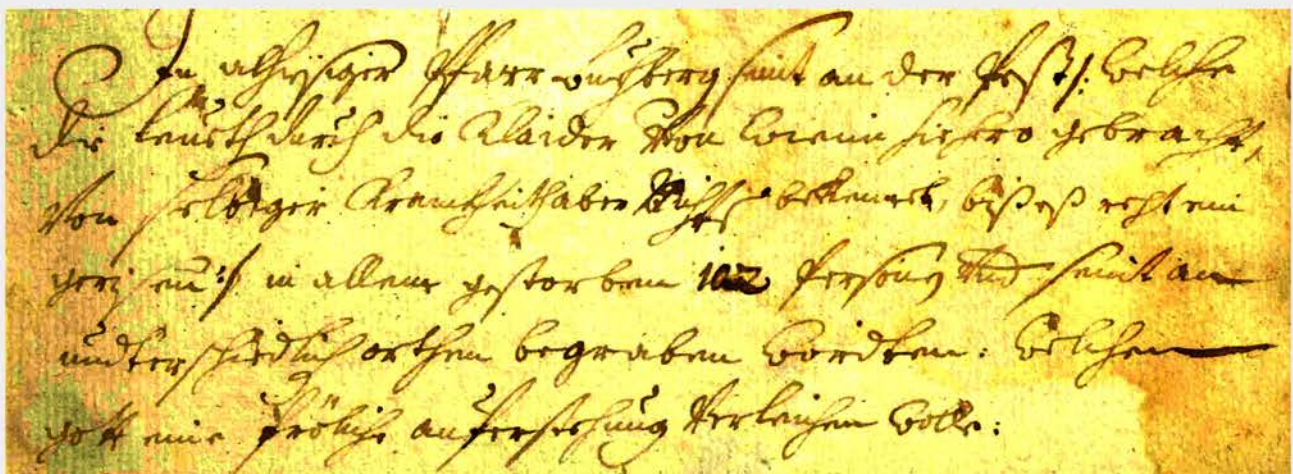 In alhiesiger Pfarr Puchberg seint an der Pest /: welche
die leuth durch die Klaider von Wienn hiehero gebracht,
von selbiger Krankheit aber nichts bekennet, biß eß recht ein
gerissen :/ in allem gestorben 102 Persohn, und seint an
undterschiedlich orthen begraben wordten: welchen
gott eine fröliche auferstehung verleichen wolle: